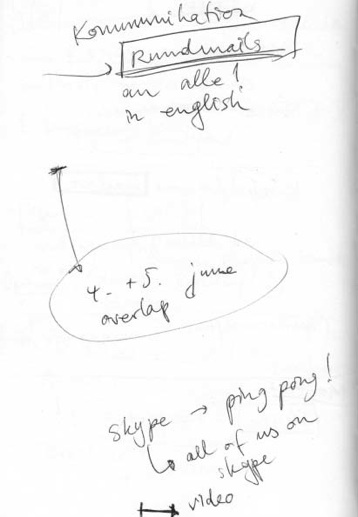 Kommunikation
Rundmails
an alle!
in english
4. + 5. june
overlap
skype → ping pong!
↳ all of us on
skype
video